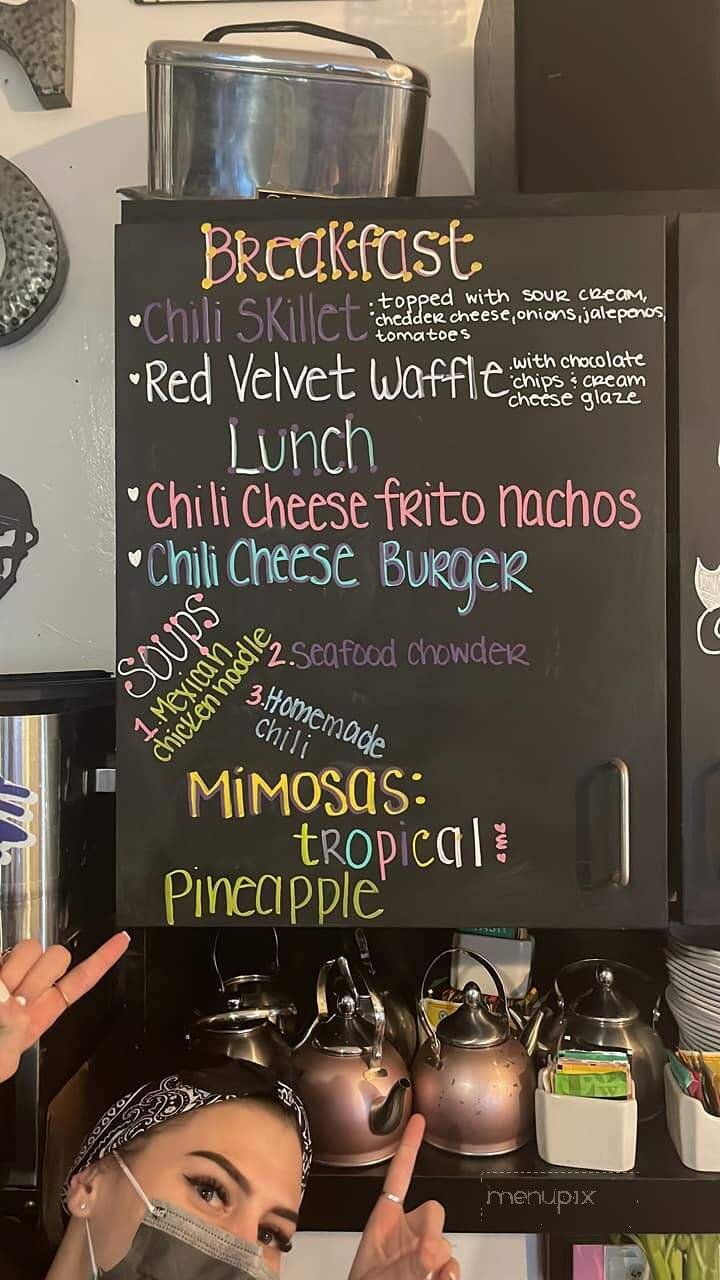 Breakfast
Chili Skillet : topped with sour cream,
chedder cheese, onions, jalepenos,
tomatoes
Red Velvet Waffle : with chocolate
chips & cream
cheese glaze
Lunch
Chili Cheese frito nachos
Chili Cheese Burger
Soups
1. Mexican
chicken noodle
2. Seafood chowder
3. Homemade
chili
Mimosas:
tropical
Pineapple
menupix